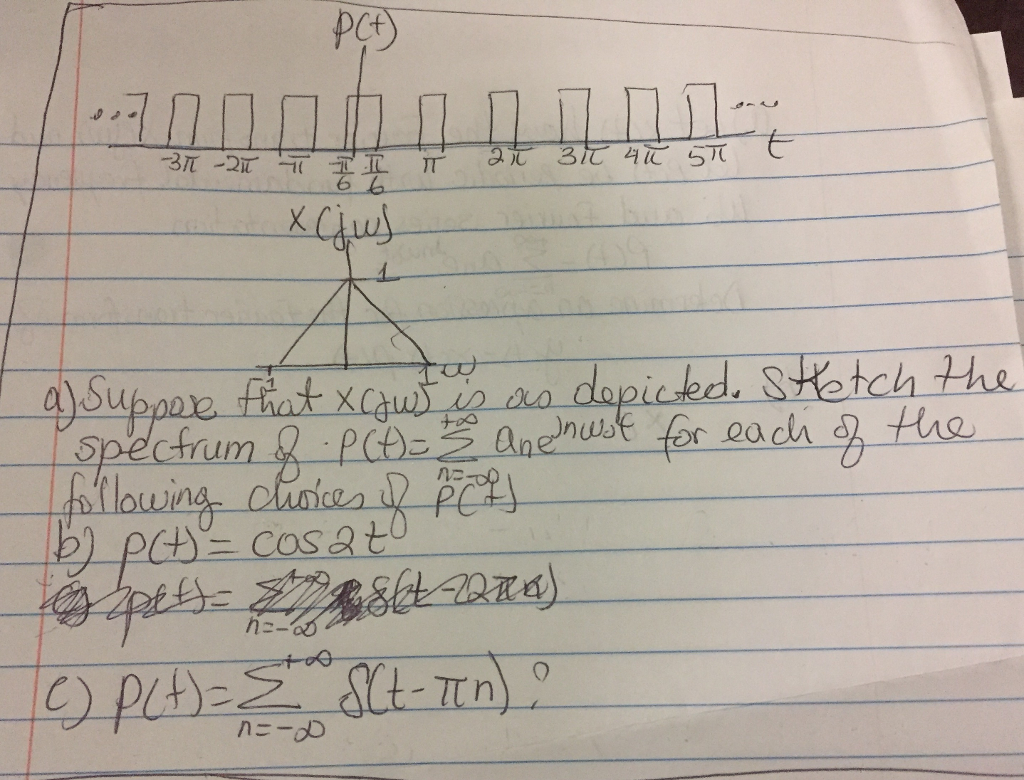 P(t)
... -3π -2π -π -π/6 π/6 π 2π 3π 4π 5π ... t
X(jω)
1
-1 1 ω
a) Suppose that X(jω) is as depicted. Sketch the
spectrum of P(t)= Σ_{n=-∞}^{+∞} an e^{jnω0t} for each of the
following choices of P(t)
b) p(t) = cos2t
p(t) = Σ_{n=-∞}^{+∞} δ(t-2πn)
c) P(t) = Σ_{n=-∞}^{+∞} δ(t-πn)?